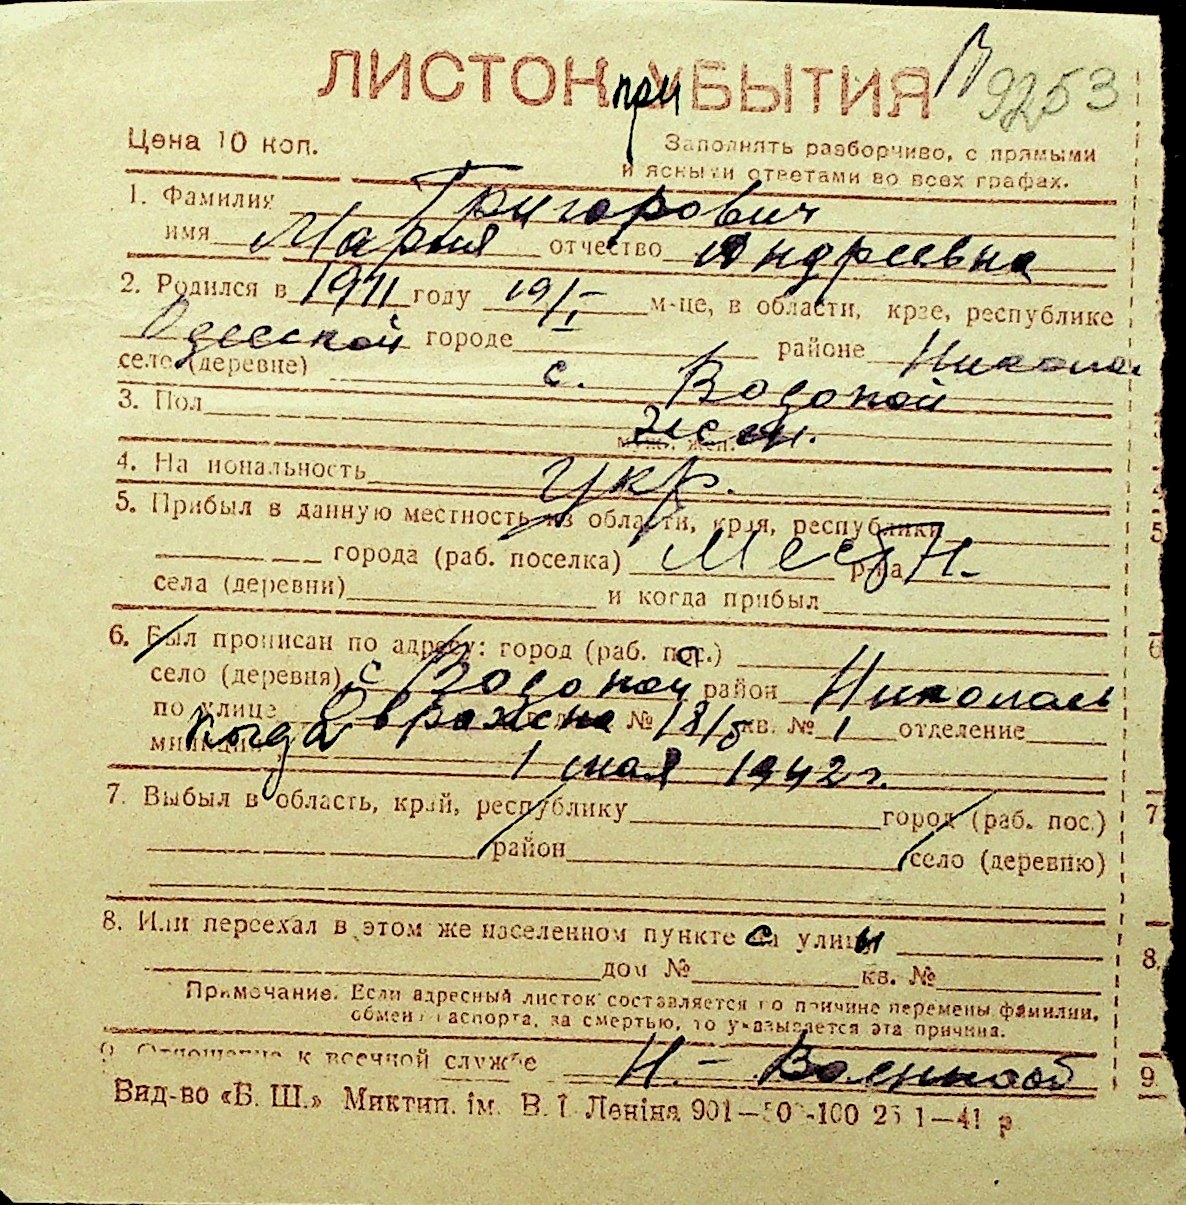 ЛИСТОК при УБЫТИЯ В 9253
Цена 10 коп.
Заполнять разборчиво, с прямыми
и ясными ответами во всех графах.
1. Фамилия Григорович
имя Мария отчество Андреевна
2. Родился в 1911 году 19/I м-це, в области, крае, республике
Одесской городе районе Никопол
селе (деревне) с. Водопой
3. Пол жен.
муж. жен.
4. Национальность укр.
5. Прибыл в данную местность из области, края, республики
города (раб. поселка) Местн. р-на
села (деревни) и когда прибыл
6. Был прописан по адресу: город (раб. пос.)
село (деревня) с Водопой район Никополь
по улице Овражена № 18/5 кв. № 1 отделение
милиции Когда 1 мая 1942 г.
7. Выбыл в область, край, республику город (раб. пос.)
район село (деревню)
8. Или переехал в этом же населенном пункте с улицы
дом № кв. №
Примечание. Если адресный листок составляется по причине перемены фамилии,
обмена паспорта, за смертью, то указывается эта причина.
9. Отношение к военной службе Н.-Военнооб
Вид-во «Б. Ш.» Миктип. ім. В. І. Леніна 901—50-100 25 1—41 р
5
6
7
8.
9.